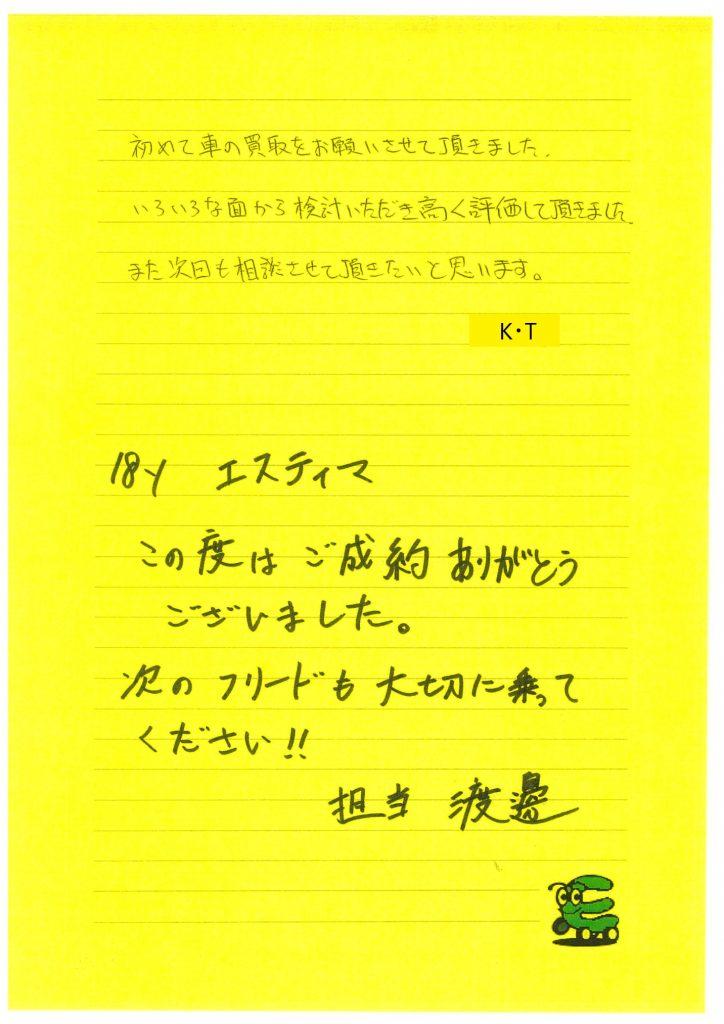 初めて車の買取をお願いさせて頂きました.
いろいろな面から検討いただき高く評価して頂きました.
また次回も相談させて頂きたいと思います。
K・T
18y エスティマ
この度は ご成約 ありがとう
ございました。
次の フリードも 大切に乗って
ください!!
担当 渡邊